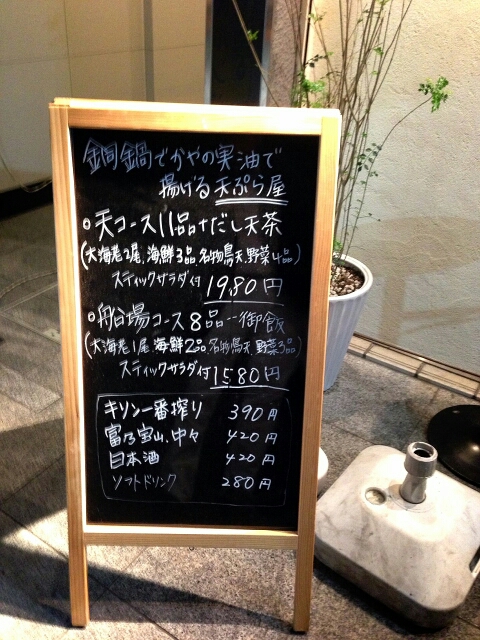 銅鍋でかやの実油で
揚げる天ぷら屋
○天コース11品+だし天茶
(大海老2尾、海鮮3品、名物鳥天、野菜4品)
スティックサラダ付 1980円
○舟谷場コース8品--御飯
(大海老1尾、海鮮2品、名物鳥天、野菜3品)
スティックサラダ付 1580円
キリン一番搾り 390円
富乃宝山、中々 420円
日本酒 420円
ソフトドリンク 280円